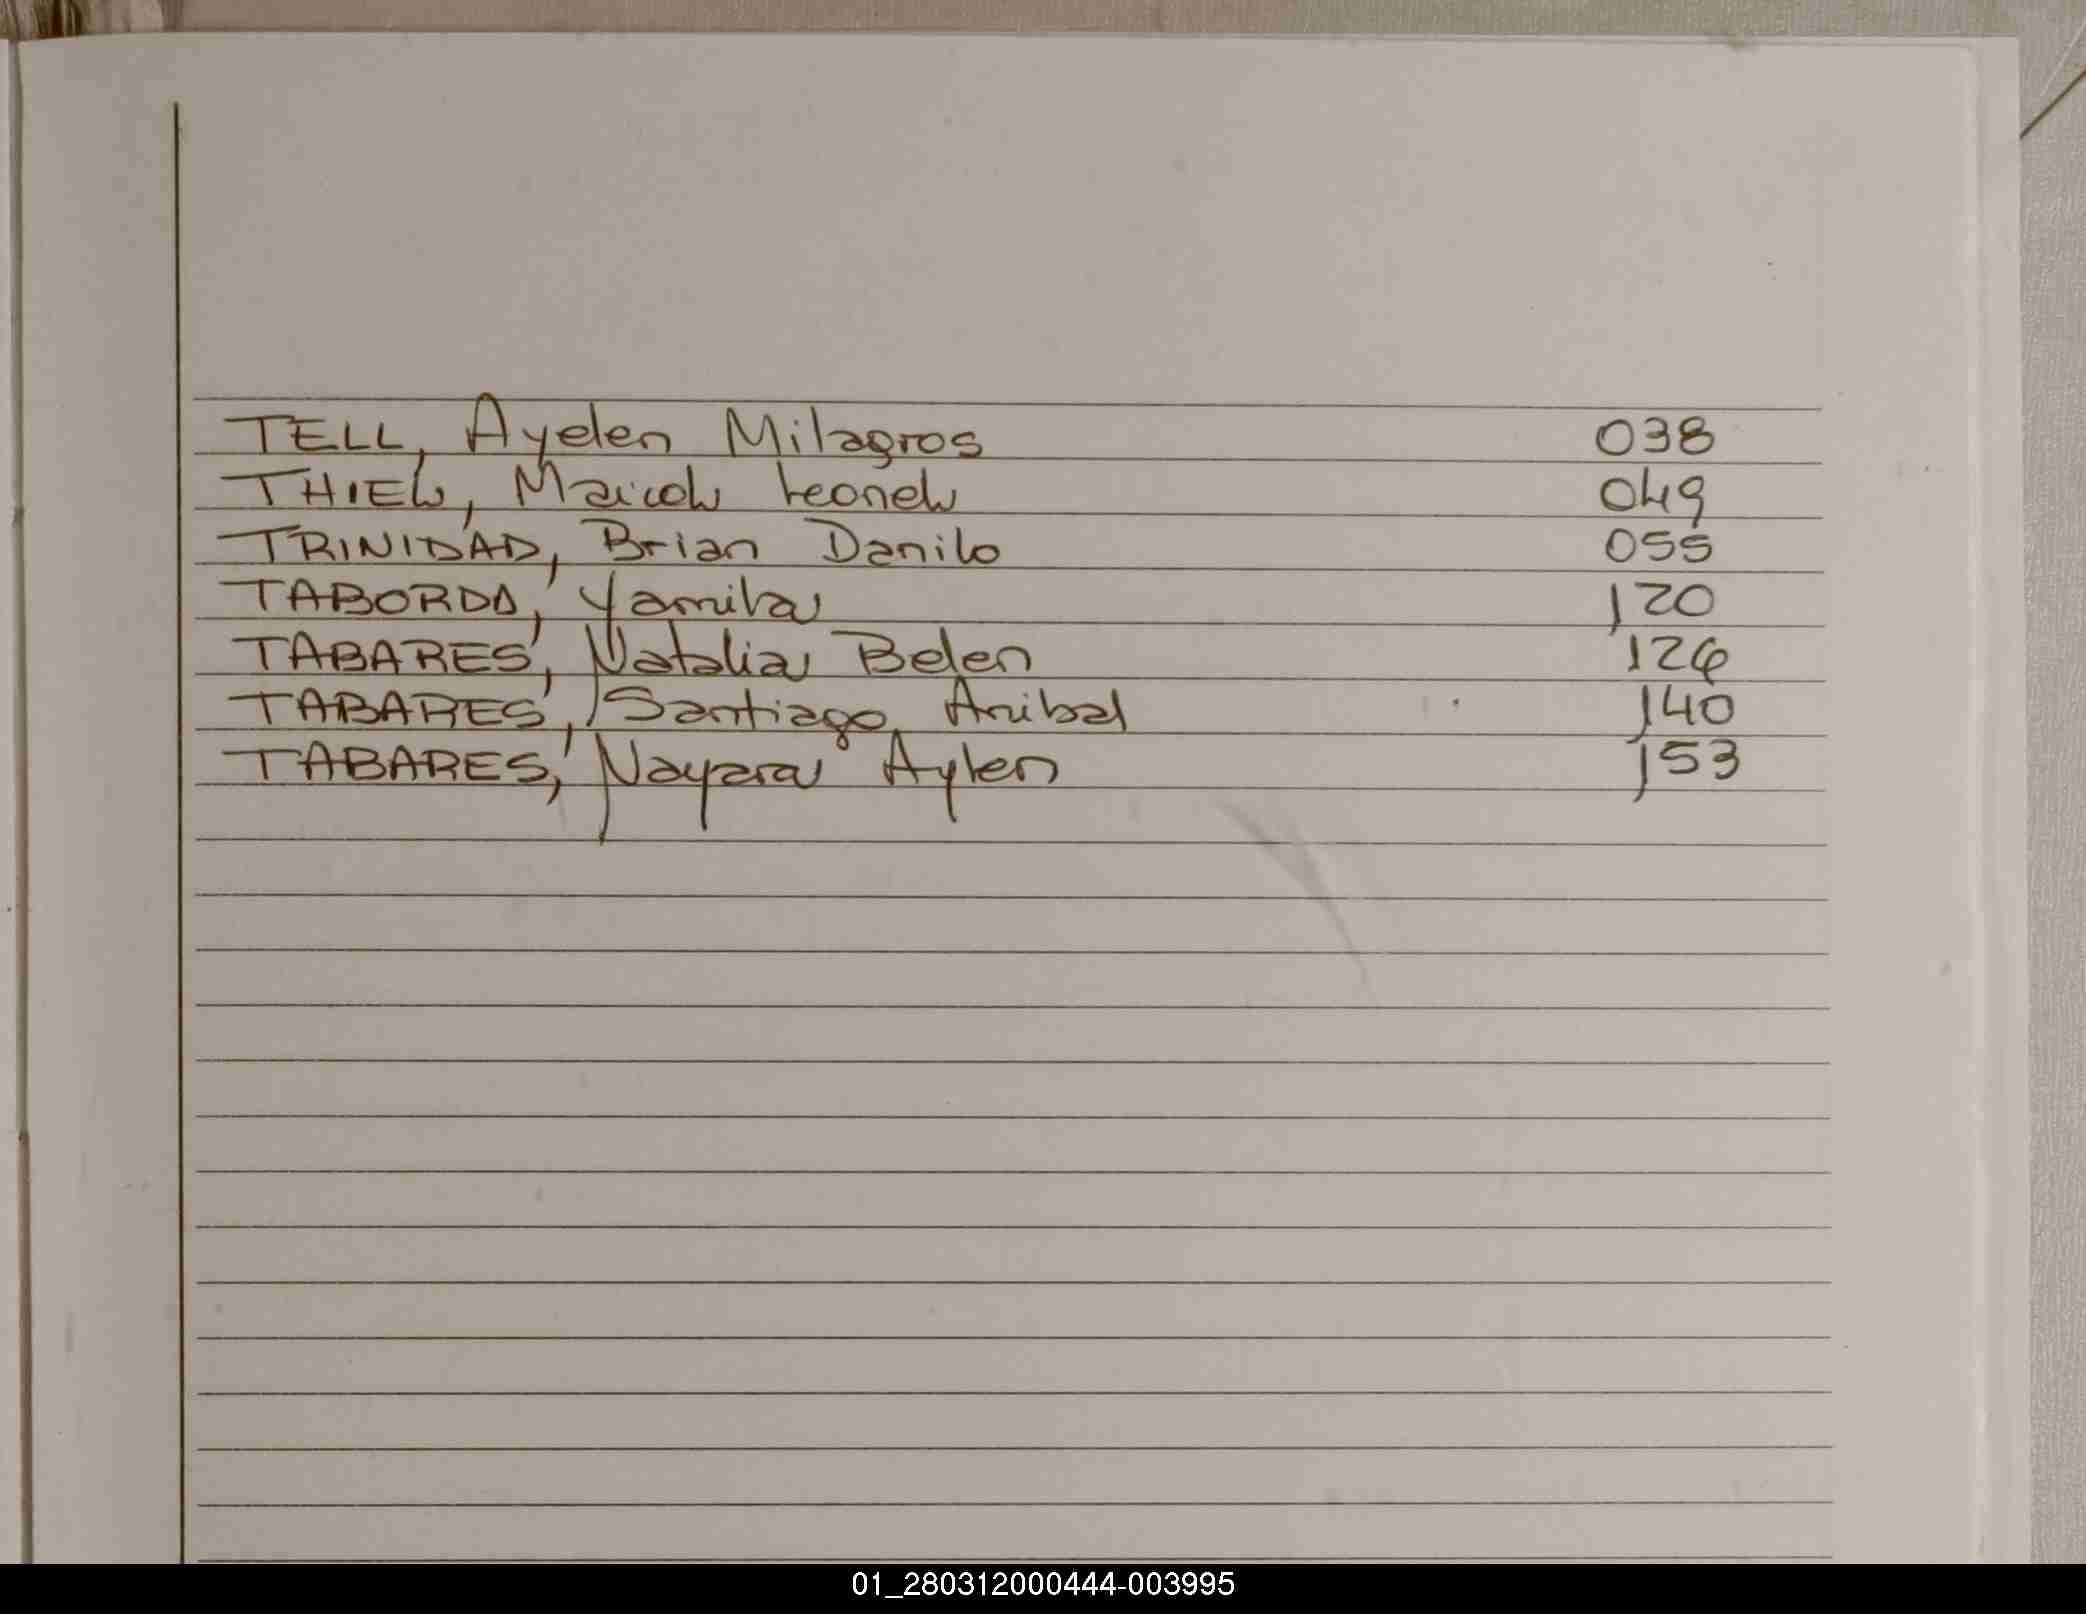 TELL, Ayelen Milagros 038
THIEL, Maicol Leonel 049
TRINIDAD, Brian Danilo 055
TABORDA, Yamila 120
TABARES, Natalia Belen 126
TABARES, Santiago Anibal 140
TABARES, Nayara Aylen 153
01_280312000444-003995